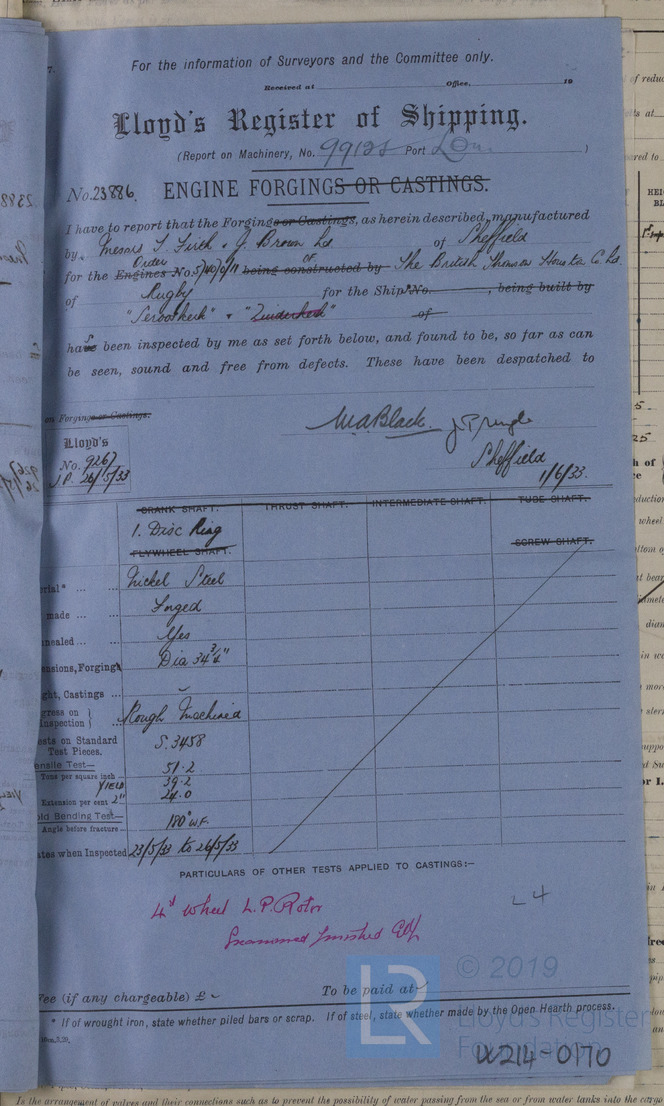 For the information of Surveyors and the Committee only.
Received at Office, 19
Lloyd's Register of Shipping.
(Report on Machinery, No. 99128 Port Lon. )
No. 23886. ENGINE FORGINGS OR CASTINGS.
I have to report that the Forgings or Castings, as herein described, manufactured
by Messrs T. Firth & J. Brown Ld of Sheffield
Order of
for the Engines No. 5/40/0/11 being constructed by The British Thomson Houston Co. Ld.
of Rugby for the Ship No. , being built by
"Serooskerk" & "Zuiderkerk" of
have been inspected by me as set forth below, and found to be, so far as can
be seen, sound and free from defects. These have been despatched to
on Forgings or Castings.
W.A. Black. J. Pringle
Lloyd's
No. 9267
J.P. 26/5/33
Sheffield
1/6/33.
CRANK SHAFT. THRUST SHAFT. INTERMEDIATE SHAFT. TUBE SHAFT.
1. Disc Ring
FLYWHEEL SHAFT. SCREW SHAFT.
rial* ... ... Nickel Steel
made ... Forged
nealed ... ... Yes
nsions, Forgings Dia 34¾"
ght, Castings ...
gress on
Inspection ... Rough Machined
ests on Standard
Test Pieces. S. 3458
ensile Test—
Tons per square inch 51.2
YIELD 39.2
Extension per cent 2" 24.0
old Bending Test—
Angle before fracture 180° W.F.
ates when Inspected 23/5/33 to 26/5/33
PARTICULARS OF OTHER TESTS APPLIED TO CASTINGS:—
4th wheel L.P. Rotor
Examined finished
L 4
Fee (if any chargeable) £ To be paid at
* If of wrought iron, state whether piled bars or scrap. If of steel, state whether made by the Open Hearth process.
10m,5,20.
© 2019
LR
Lloyd's Register
Foundation
W214-0170
Is the arrangement of valves and their connections such as to prevent the possibility of water passing from the sea or from water tanks into the cargo